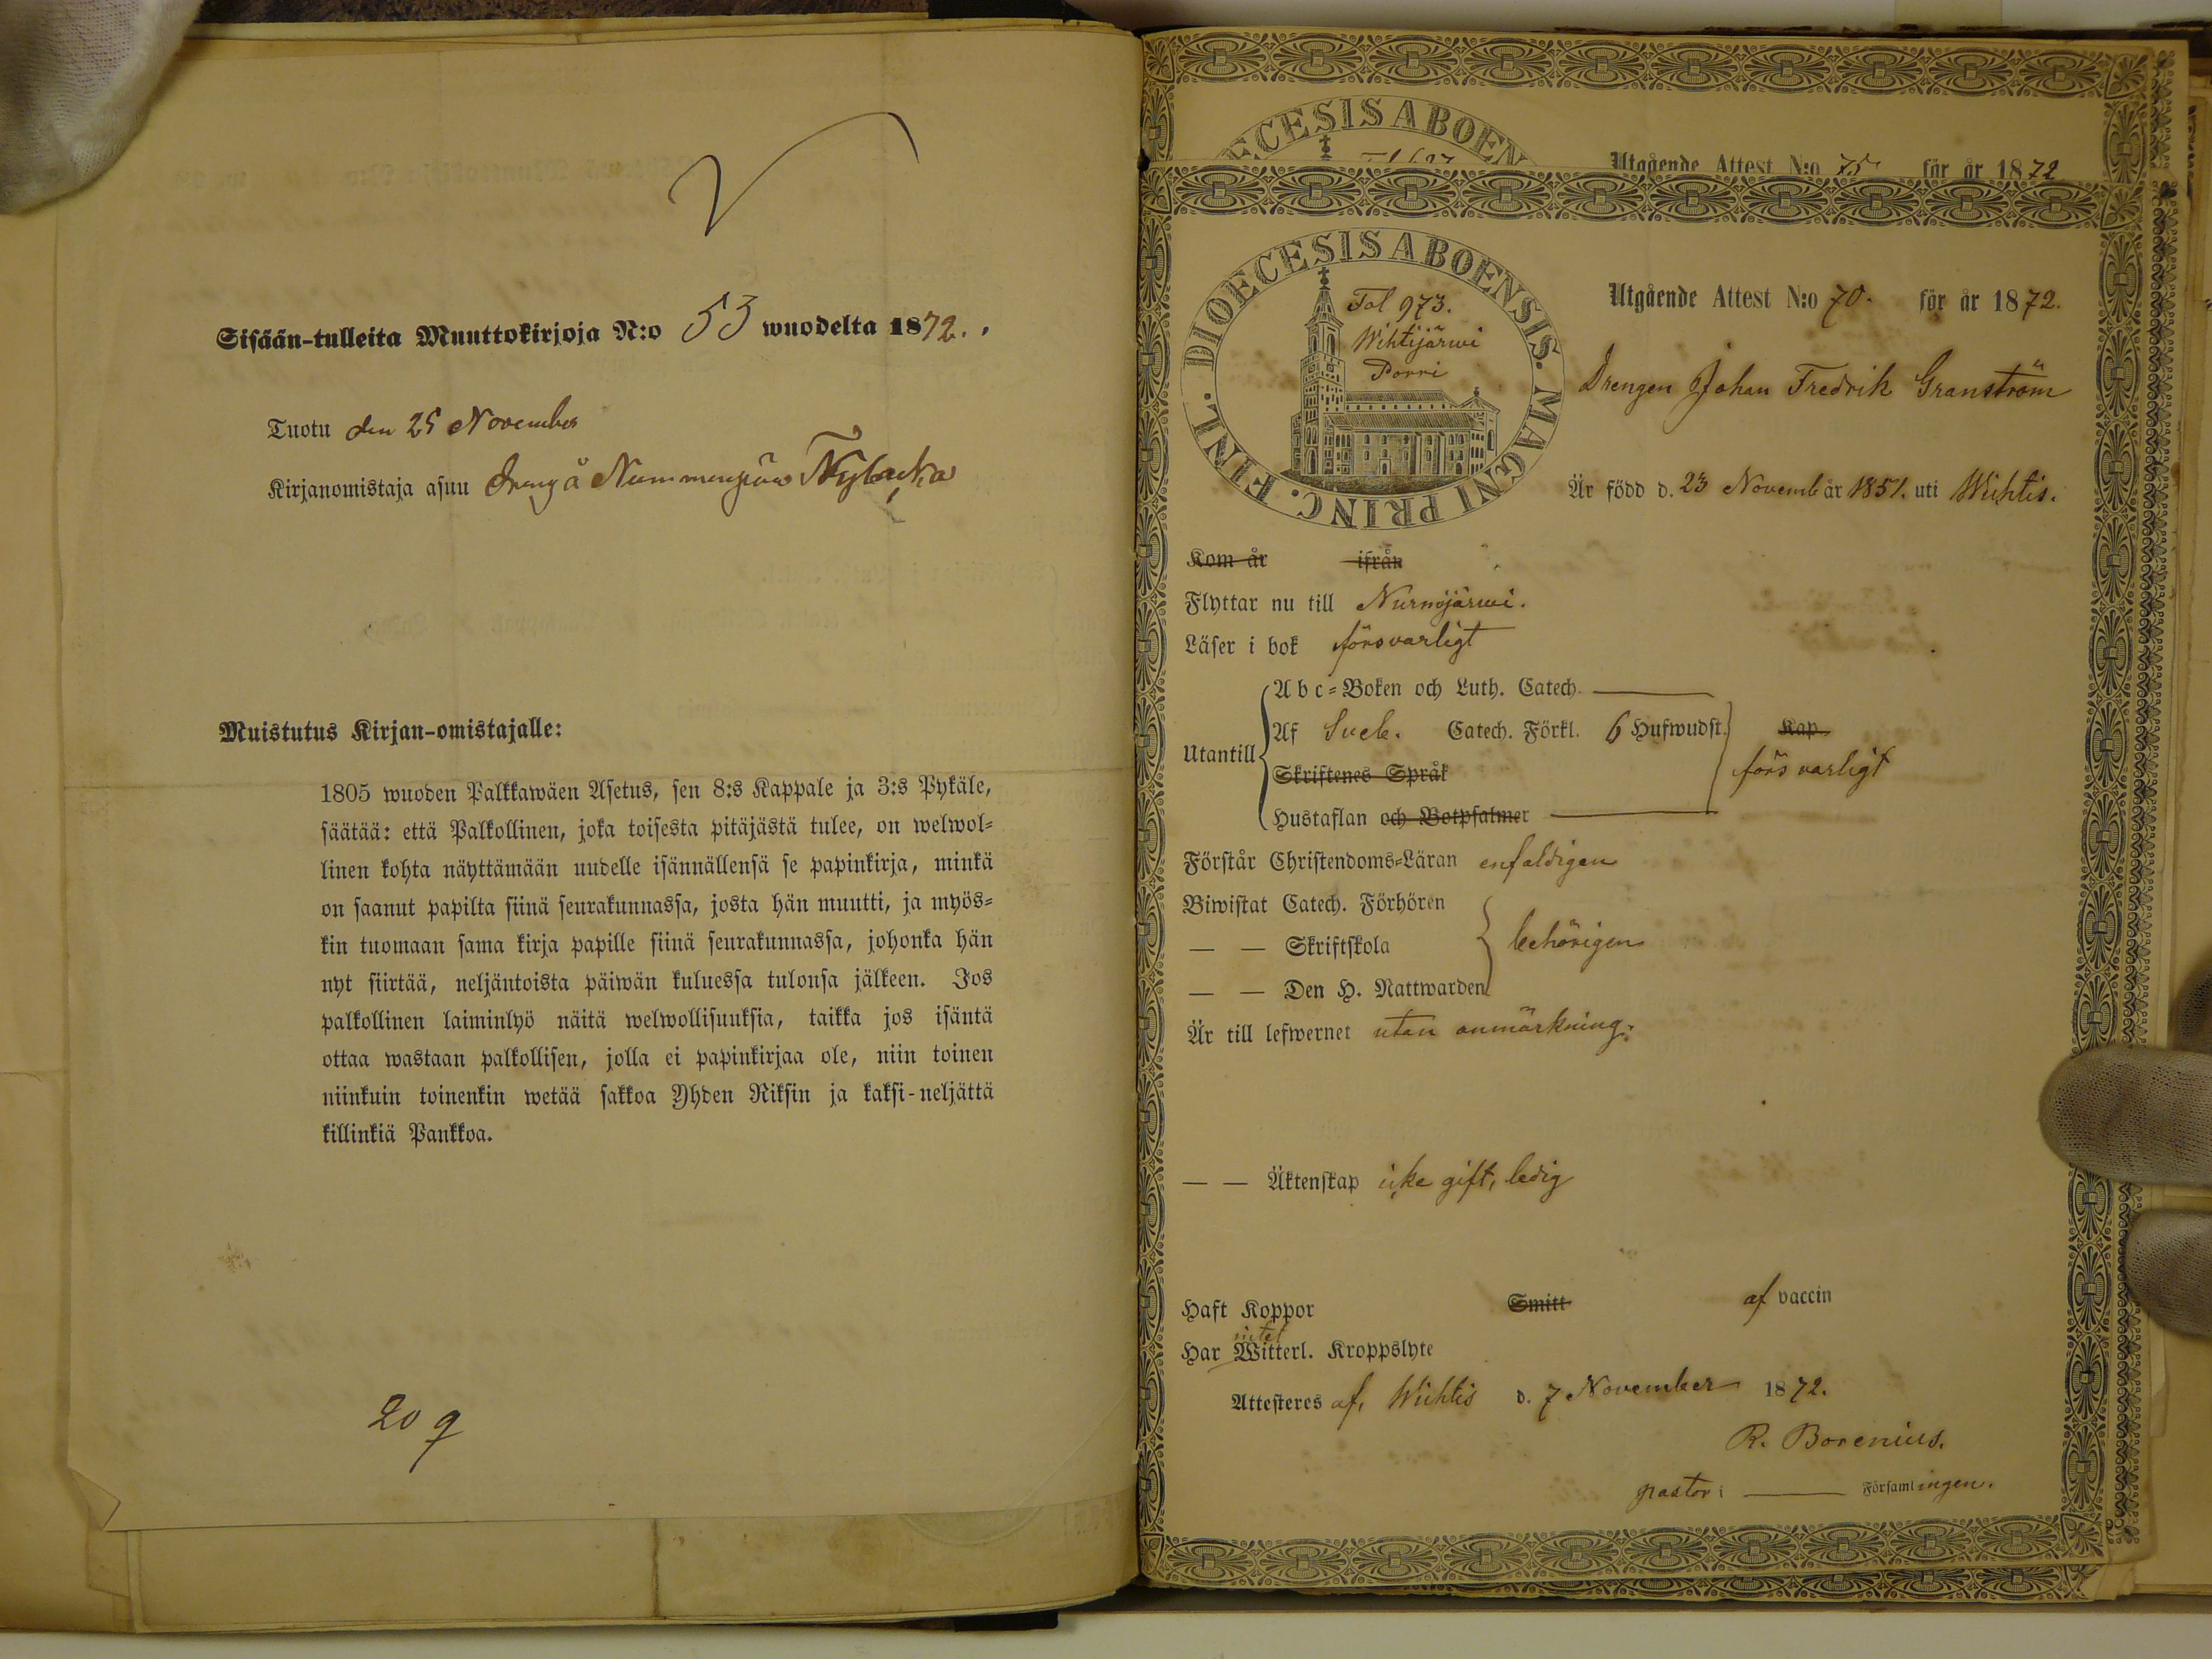 Sisään-tulleita Muuttokirjoja N:o 53 wuodelta 1872.
Tuotu den 25 November
Kirjanomistaja asuu dreng å
Muistutus Kirjan-omistajalle:
1805 wuoden Palkkawäen Asetus, sen 8:s Kappale ja 3:s Pykäle,
säätää: että Palkollinen, joka toisesta pitäjästä tulee, on welwol=
linen kohta näyttämään uudelle isännällensä se papinkirja, minkä
on saanut papilta siinä seurakunnassa, josta hän muutti, ja myös=
kin tuomaan sama kirja papille siinä seurakunnassa, johonka hän
nyt siirtää, neljäntoista päiwän kuluessa tulonsa jälkeen. Jos
palkollinen laiminlyö näitä welwollisuuksia, taikka jos isäntä
ottaa wastaan palkollisen, jolla ei papinkirjaa ole, niin toinen
niinkuin toinenkin wetää sakkoa Yhden Riksin ja kaksi-neljättä
killinkiä Pankkoa.
ECESIS ABOEN
Utgående Attest N:o 75 för år 1872
DIOECESIS ABOENSIS. MAGNI PRINC. FINL.
Fol 973.
Wihtijärwi
Porri
Utgående Attest N:o 70. för år 1872.
Drengen Johan Fredrik Granström
Är född d. 23 Novemb år 1851. uti Wichtis.
Kom år ifrån
Flyttar nu till Nurmijärwi.
Läser i bok försvarligt
Abc=Boken och Luth. Catech.
Utantill Af Sveb. Catech. Förkl. 6 Hufwudst. Kap
Skriftenes Språk försvarligt
Hustaflan och Botpsalmer
Förstår Christendoms=Läran enfaldigen
Biwistat Catech. Förhören
— — Skriftskola behörigen
— — Den H. Nattwarden
Är till lefwernet utan anmärkning.
— — Äktenskap icke gift, ledig
Haft Koppor Smitt af vaccin
intet
Har Witterl. Kroppslyte
Attesteres af, Wichtis d. 7 November 1872.
R. Borenius.
pastor i — Församlingen.